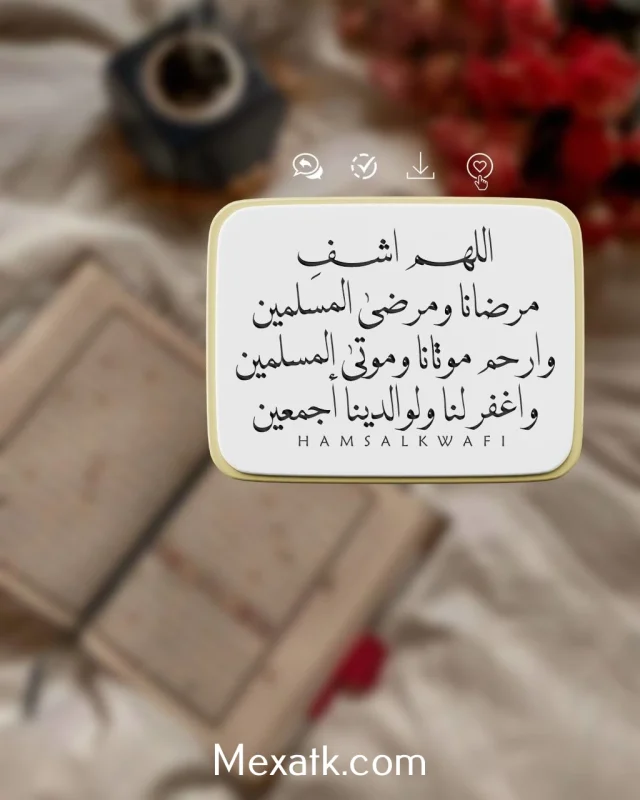 اللهم اشفِ
مرضانا ومرضى المسلمين
وارحم موتانا وموتى المسلمين
واغفر لنا ولوالدينا أجمعين
HAMSALKWAFI
Mexatk.com